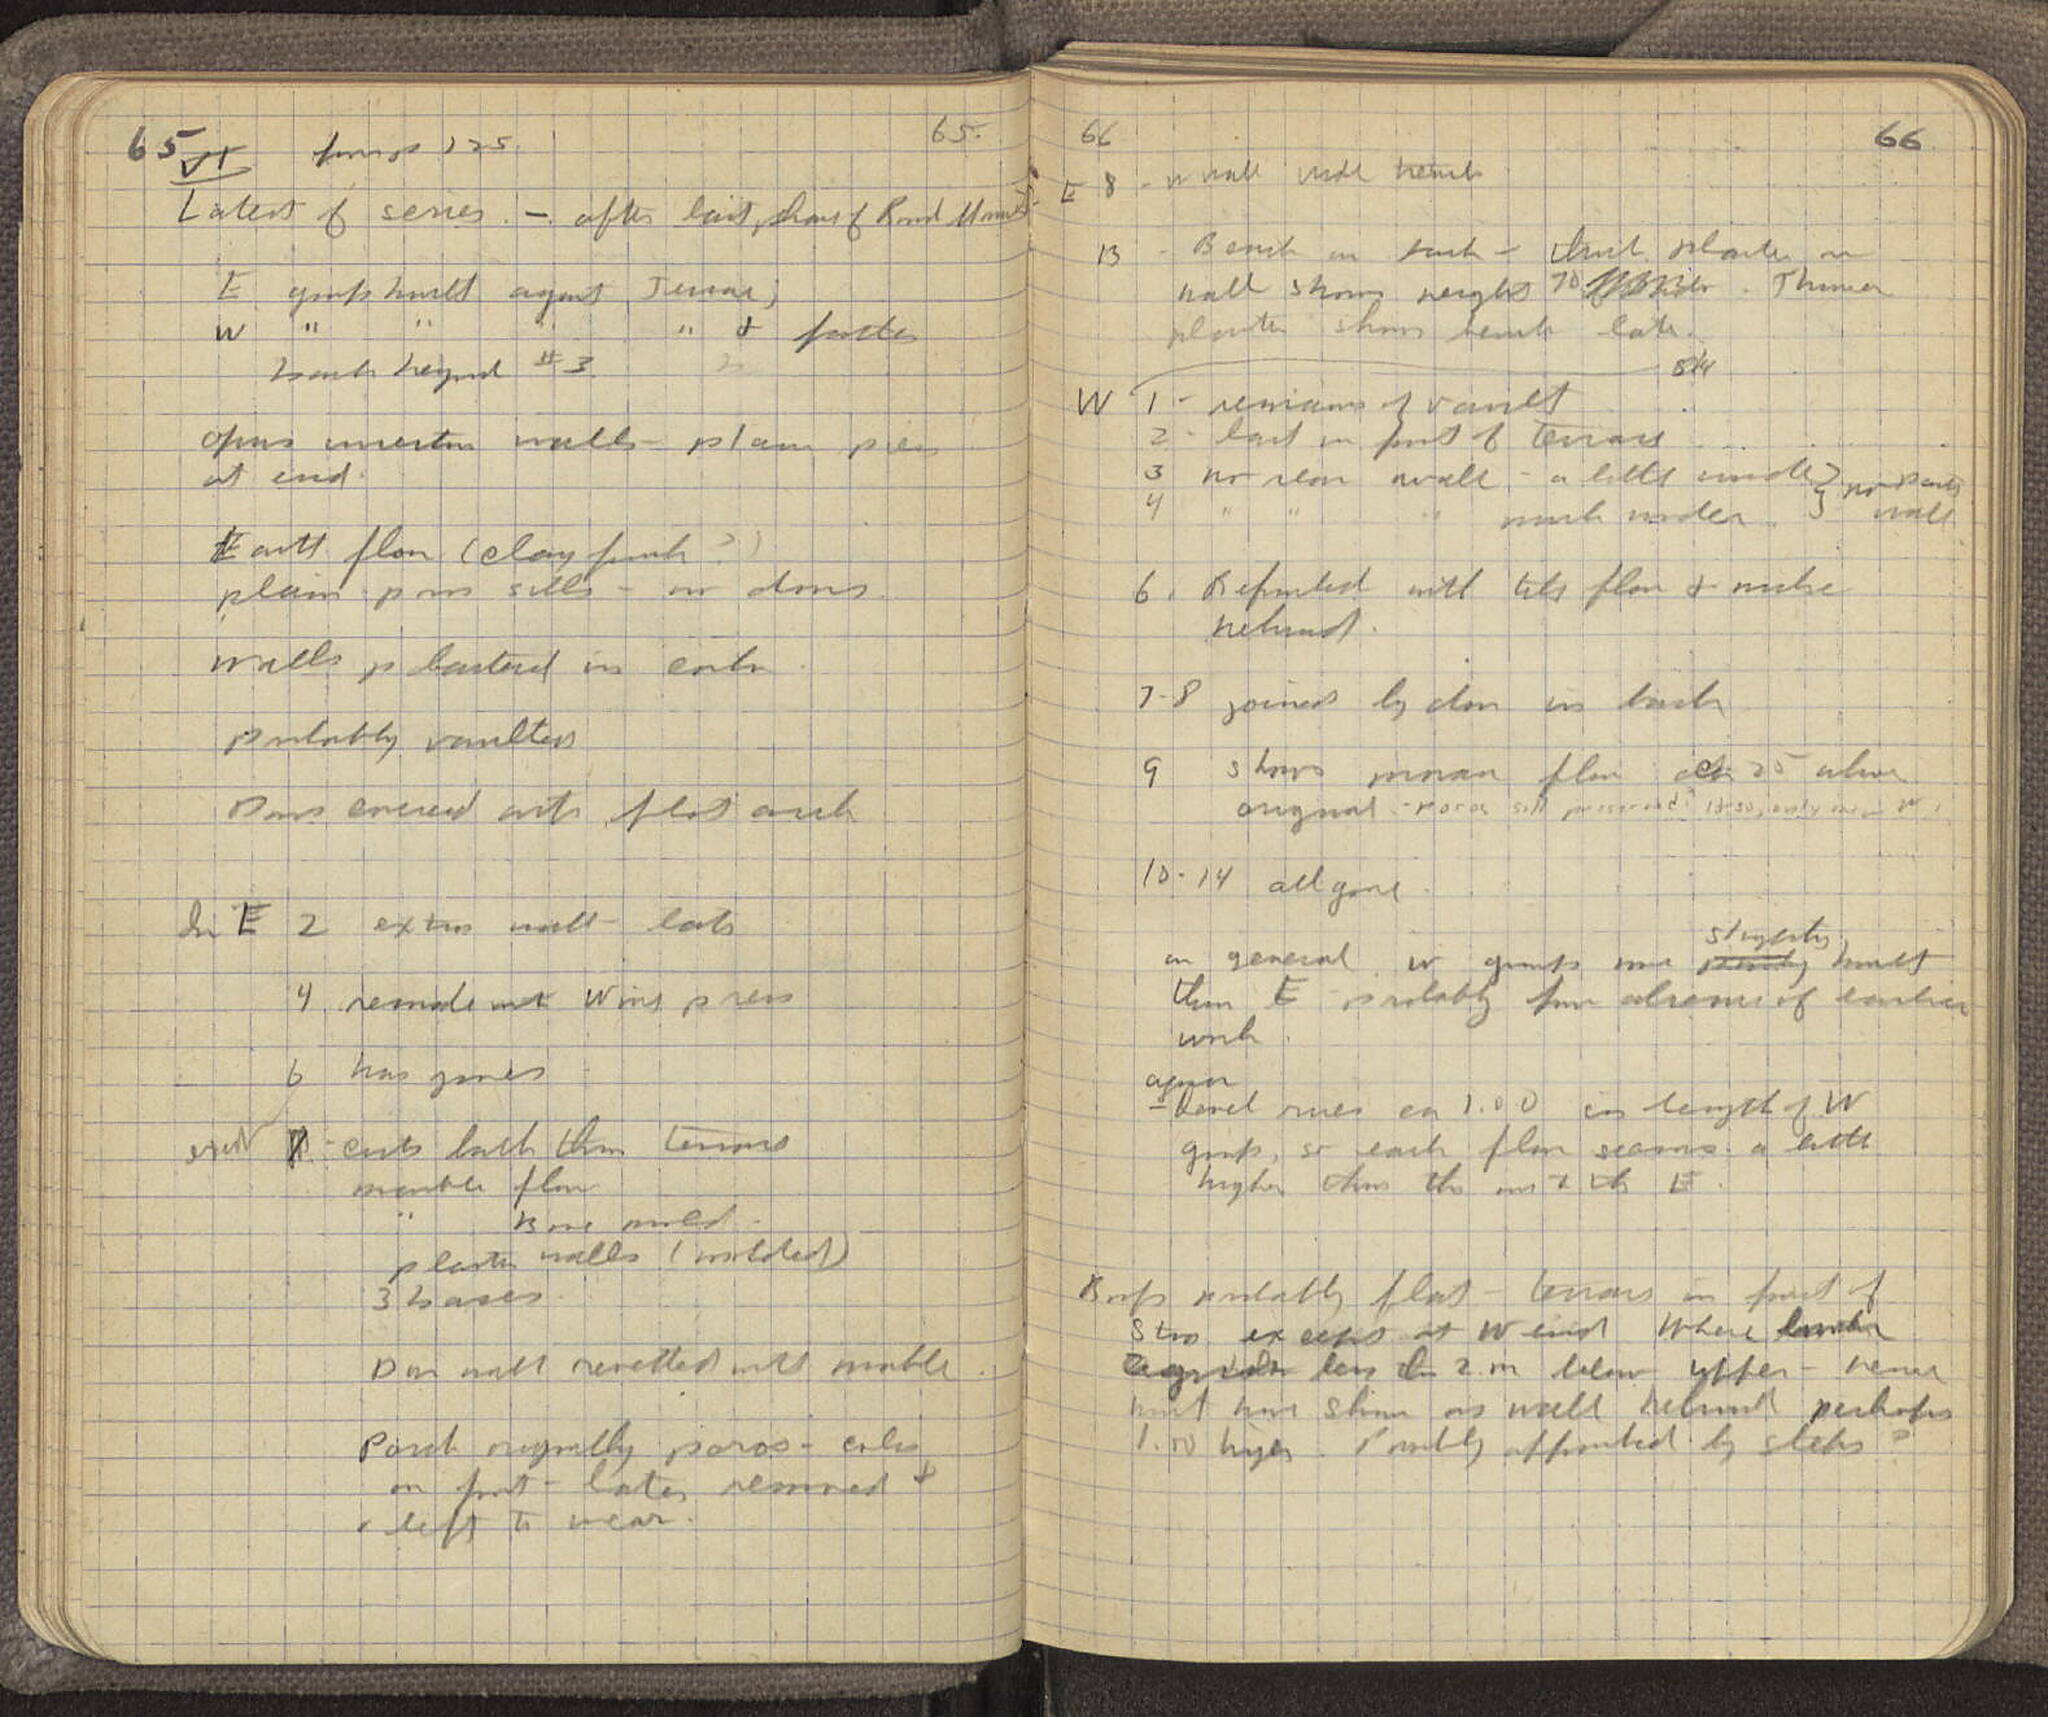 65 65.
VI from p 125.
Latest of series. - after last phase of Round Monument
E group built against Terrace;
W " " " " + farther
back beyond #3
opus incertum walls - plain piers
at end.
Earth floor (clay ?)
plain poros sills - no doors.
Walls plastered in color.
Probably vaulted
Doors covered with flat arch
In E 2 extra wall - late
4. remade into Wine press
6 has
8 - cuts back thru terrace
marble floor
" Base mold.
plaster walls (molded)
3 bases.
Door wall revetted with marble.
Porch originally poros - cols
on front - later removed +
left to wear.
66 66
E 8 - W wall
13 - Bench on back - thick plaster on
wall shows height 70 . Thinner
plaster shows bench late.
W 1 - remains of vault
2 - last in front of terrace
3 no rear wall - a little wide } no party
4 " " " much wider } wall
6. Repaired with tile floor + niche
behind.
7-8 joined by door in back
9 shows mosaic floor ca 25 above
original - Poros sill preserved? If so, only one in W.
10-14 all gone.
In general W group more slightly built
than E - probably from absence of earlier
work.
again
- Level rises ca 1.00 in length of W
group, so each floor seems a little
higher than the one to the E.
Roofs probably flat - terrace in front of
Stoa except at W end where lower
less than 2 m below upper - hence
must have shown as wall behind perhaps
1.00 high. Possibly approached by steps?